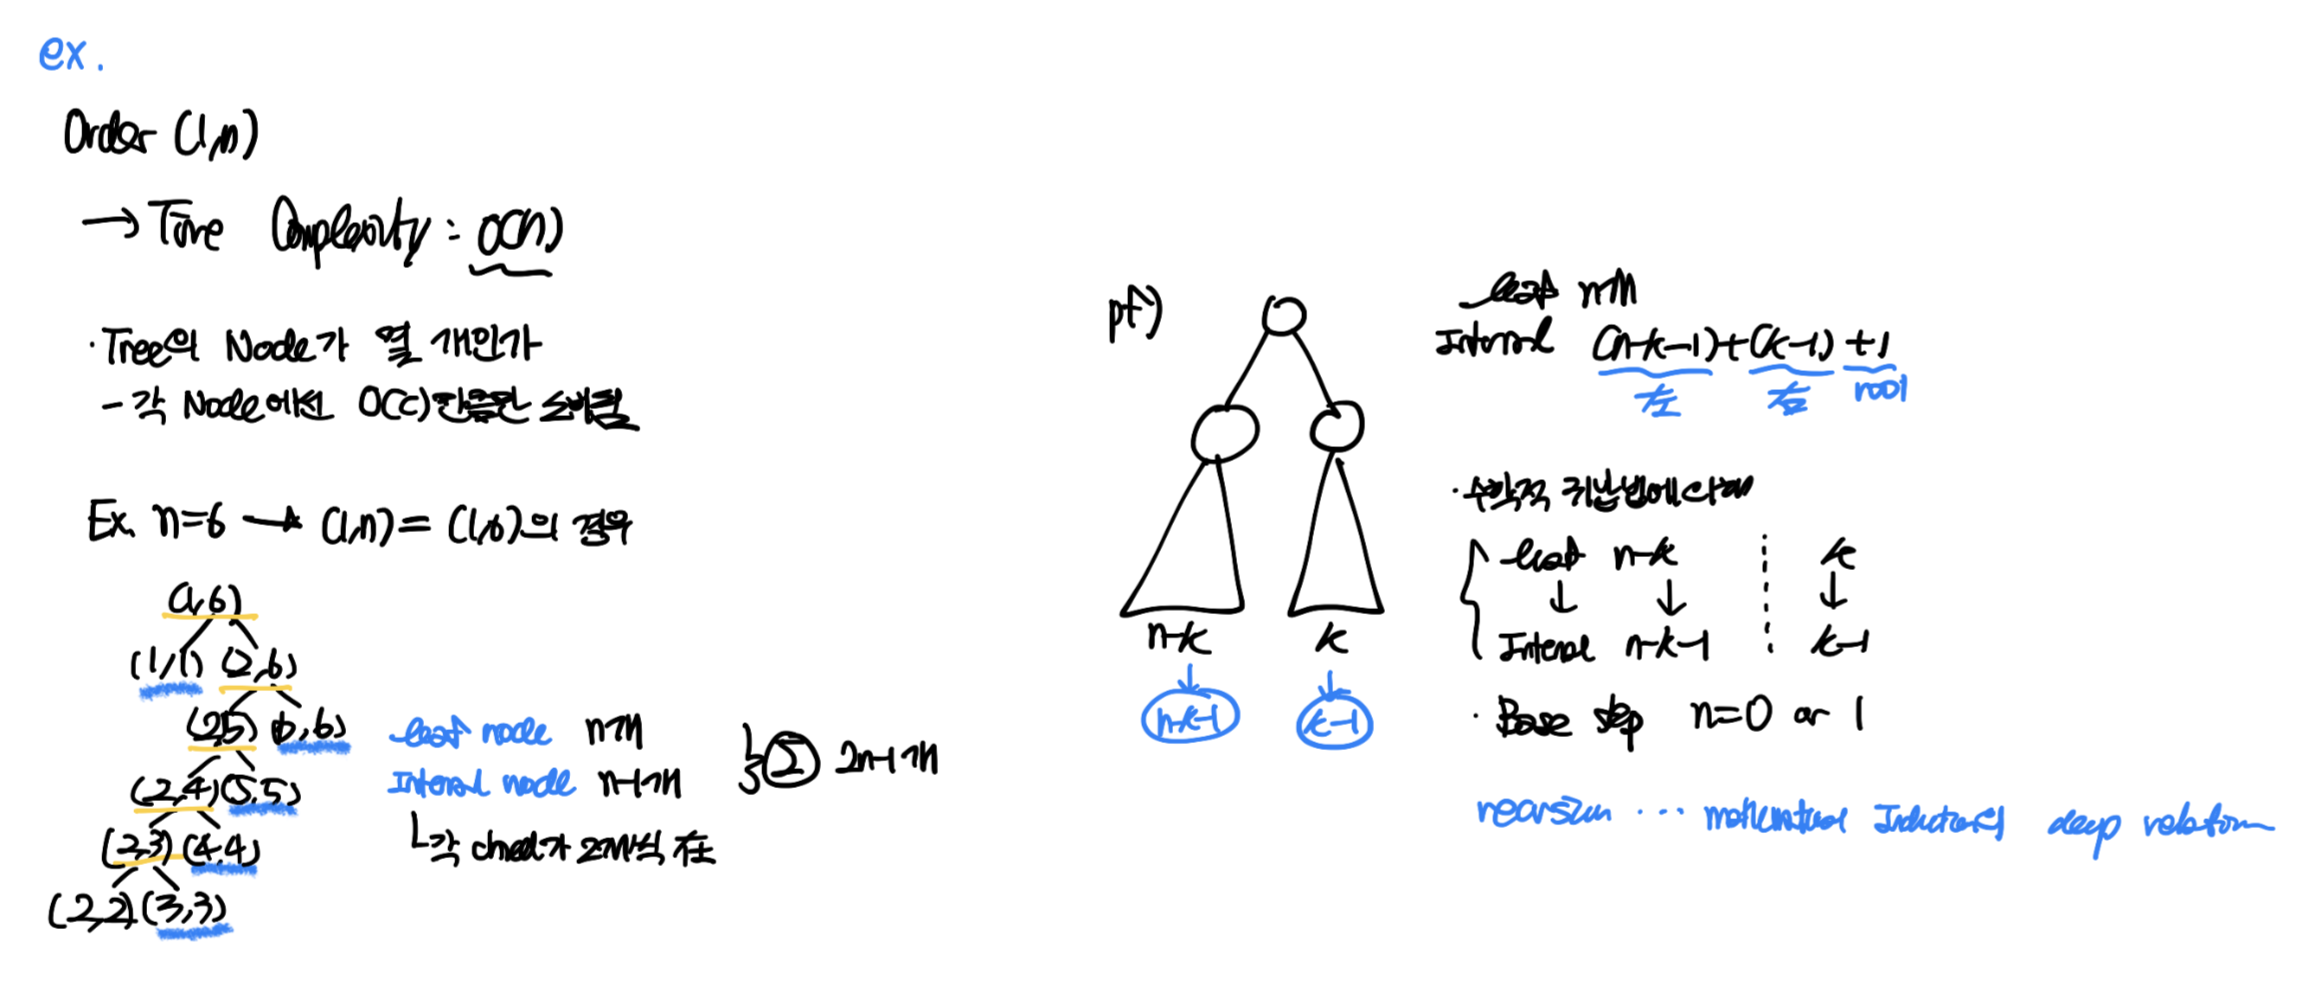 ex.
Order (1,n)
→ Time Complexity : O(n)
· Tree의 Node가 몇 개인가
- 각 Node에선 O(c)만큼만 소비됨
Ex. n=6 → (1,n) = (1,6)의 경우
(1,6)
(1,1) (2,6)
(2,5) (6,6)
(2,4) (5,5)
(2,3) (4,4)
(2,2) (3,3)
leaf node n개
Internal node n-1개
Σ 2n-1개
└ 각 child가 2개씩 존
pf)
n-k k
n-k-1 k-1
leaf n개
Internal (n-k-1)+(k-1)+1
左 右 root
· 수학적 귀납법에 의해
leaf n-k k
↓ ↓ ↓
Internal n-k-1 k-1
· Base step n=0 or 1
recursion ... mathematical Induction deep relation